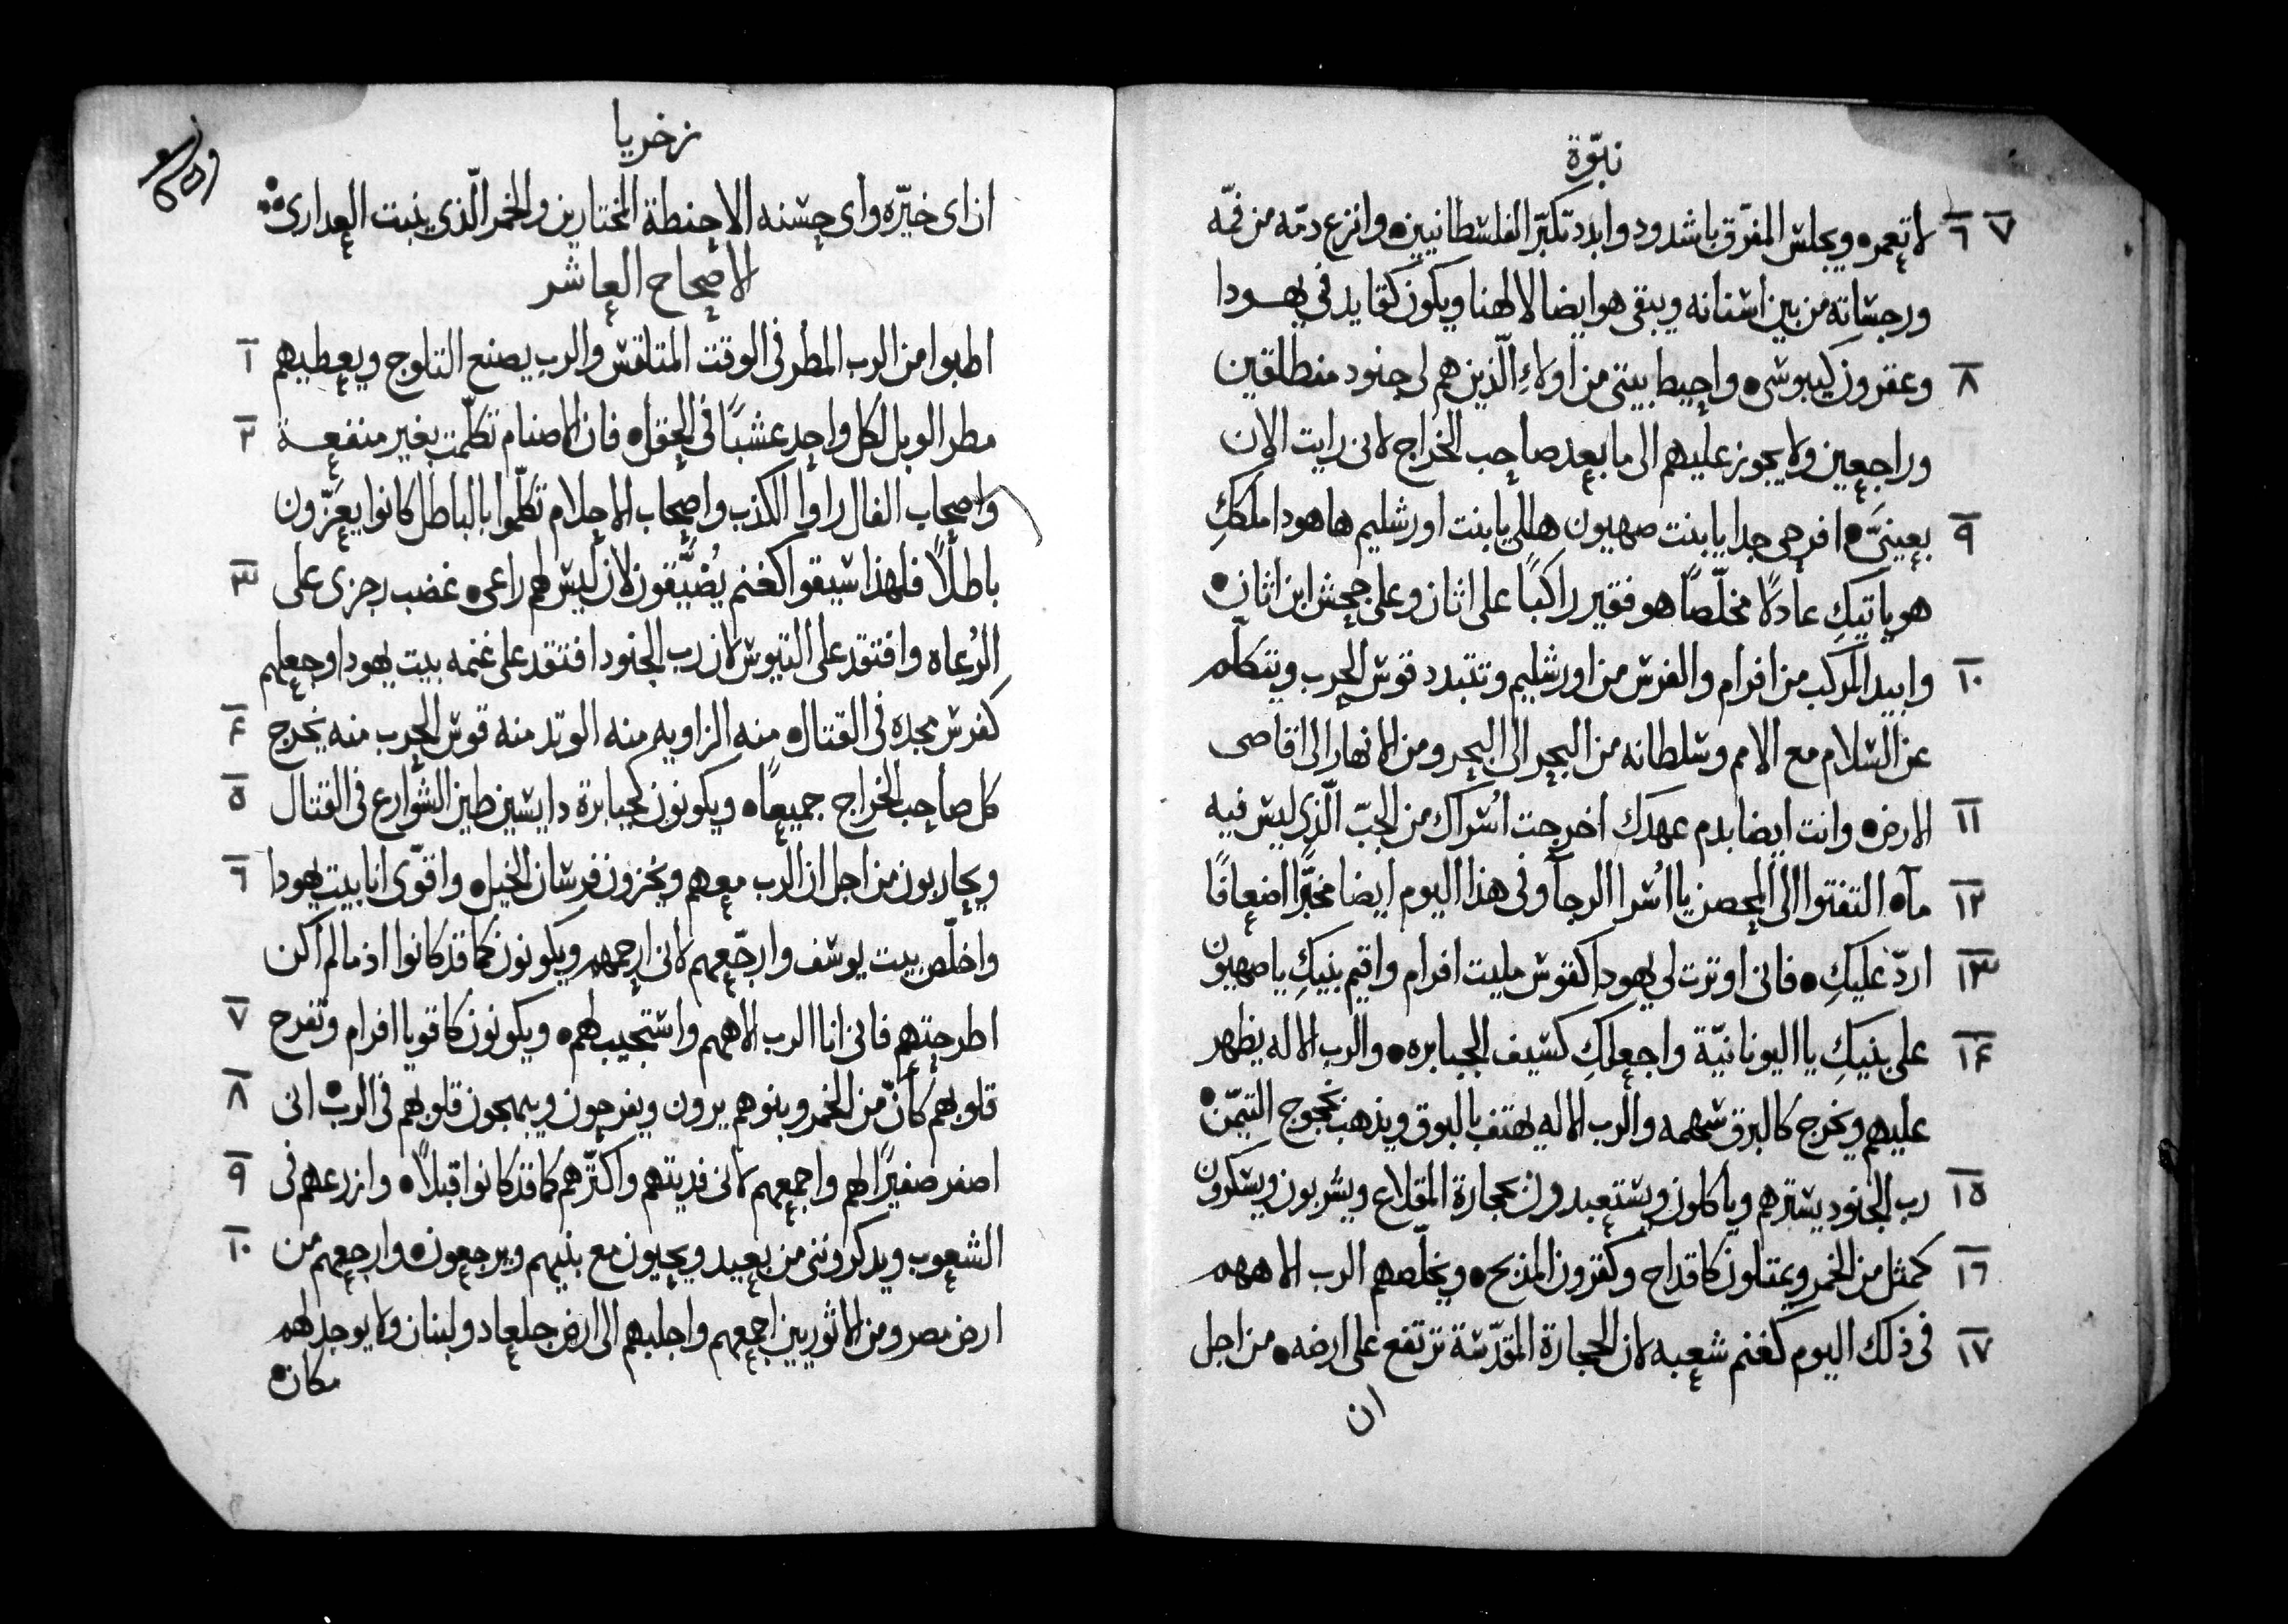 نبوّة
٦ ٧ لا تعمره ويجلس المفرّق باشدود وابدد تكبّر الفلسطانيين وانزع دمّه من فمّه
ورجساته من بين اسنانه ويبقى هو ايضا لالهنا ويكون كقايد في يهودا
٨ وعقرون كيبوسى واحيط ببيتى من اولاءِ الّذين هم لى جنود منطلقين
وراجعين ولا يجوز عليهم الى ما بعد صاحب الخراج لانى رايت الان
٩ بعينىَّ افرحى جدا يا بنت صهيون هللى يا بنت اورشليم ها هودا ملككِ
هو ياتيكِ عادلًا مخلّصًا هو فقير راكبًا على اثان وعلى جحش ابن اثان
١٠ وابيد المركب من افرام والفرس من اورشليم وتتبدد قوس الحرب ويتكلّم
عن السلام مع الامم وسلطانه من البحر الى البحر ومن الانهار الى اقاصى
١١ الارض وانت ايضا بدم عهدك اخرجت اُسراك من الجبّ الّذى ليس فيه
١٢ مآء التفتوا الى الحصن يا اُسرا الرجآ وفى هذا اليوم ايضا مخبَّرا اضعافًا
١٣ اردّ عليكِ فانى اوترت لى يهودا كقوس مليت افرام واقيم بنيكِ يا صهيون
١٤ على بنيكِ يا اليونانيّة واجعلكِ كسيف الجبابره والرب الاله يظهر
عليهم ويخرج كالبرق سهمه والرب الاله يهتف بالبوق ويذهب بمجوج التيمّن
١٥ رب الجنود يسترهم وياكلون ويستعبدون بحجارة المقلاع ويشربون ويسكرون
١٦ كمثل من الخمر ويمتلون كاقداح وكقرون المذبح ويخلّصهم الرب الاههم
١٧ فى ذلك اليوم كغنم شعبه لان الحجارة المقدّسة ترتفع على ارضه من اجل
ان
زخريا
ان اى خيّره واى حسنه الا حنطة المختارين والخمر الّذى ينبت العدارى
الاصحاح العاشر
١ اطلبوا من الرب المطر فى الوقت المتلقس والرب يصنع التلوج ويعطيهم
٢ مطر الوبل لكل واحد عشبًا فى الحقل فان الاصنام تكلّمت بغير منفعة
واصحاب الفال راوا الكذب واصحاب الاحلام تكلّموا بالباطل كانوا يعزّون
٣ باطلًا فلهذا سيقوا كغنم يُضيَّقون لان ليس لهم راعى غضب رجزى على
الرُعاه وافتقد على التيوس لان رب الجنود افتقد على غنمه بيت يهودا وجعلهم
٤ كفرس مجده فى القتال منه الزاويه منه الوتد منه قوس الحرب منه يخرج
٥ كل صاحب الخراج جميعًا ويكونون كجبابرة دايسين طين الشوارع فى القتال
٦ ويحاربون من اجل ان الرب معهم ويخزون فرسان الخيل واقوّى انا بيت يهودا
واخلّص بيت يوسف وارجّعهم لانى ارحمهم ويكونون كما قد كانوا اذ ما لم اكن
٧ اطرحتهم فانى انا الرب الاههم واستجيب لهم ويكونون كاقويا افرام وتفرح
٨ قلوبهم كأنّ من الخمر وبنوهم يرون ويفرحون ويبهجون قلوبهم فى الرب انى
٩ اصفر صفيرًا لهم واجمعهم لانى فديتهم واكثّرهم كما قد كانوا قبلًا وازرعهم فى
١٠ الشعوب ويدكروننى من بعيد ويحيون مع بنيهم ويرجعون وارجعهم من
ارض مصر ومن الاثوريين اجمعهم واجلبهم الى ارض جلعاد ولبنان ولا يوجد لهم
مكان